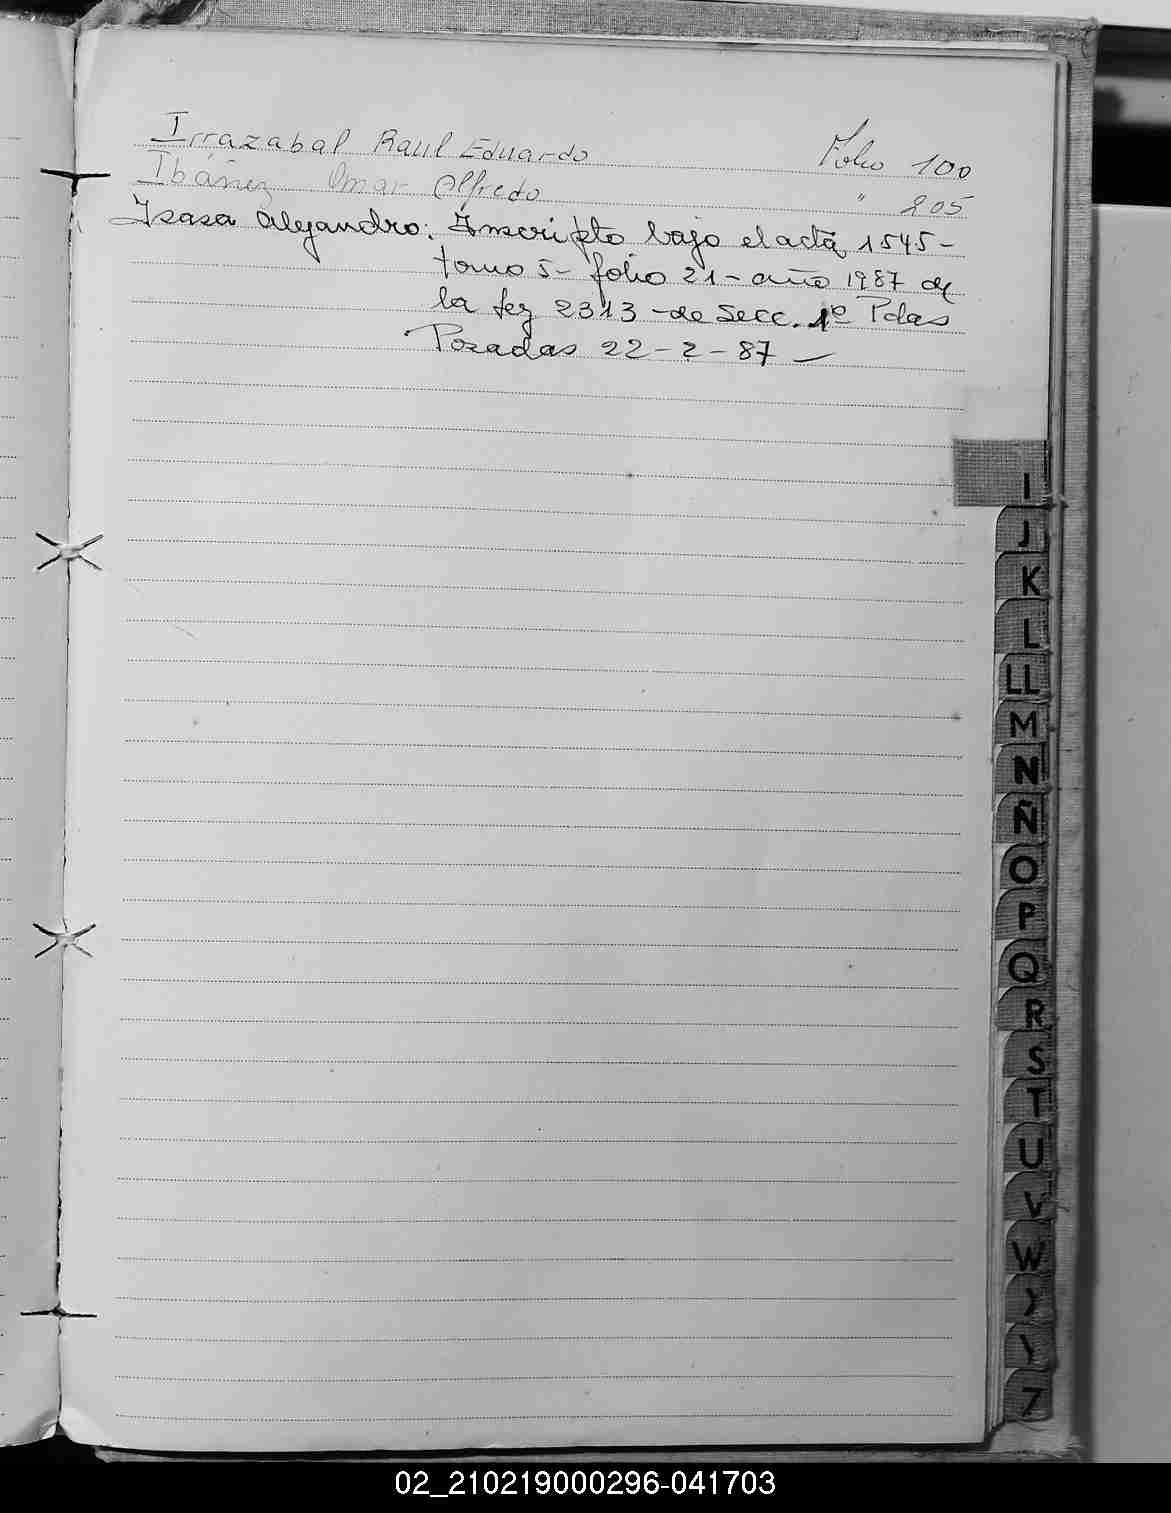 Irrazabal Raul Eduardo Folio 100
Ibáñez Omar Alfredo " 205
Isasa Alejandro: Inscripto bajo el acta 1545-
tomo 5- folio 21- año 1987 de
la fez 2313 - de Secc. 1º Pdas
Posadas 22-2-87 -
I
J
K
L
LL
M
N
Ñ
O
P
Q
R
S
T
U
V
W
Z
02_210219000296-041703